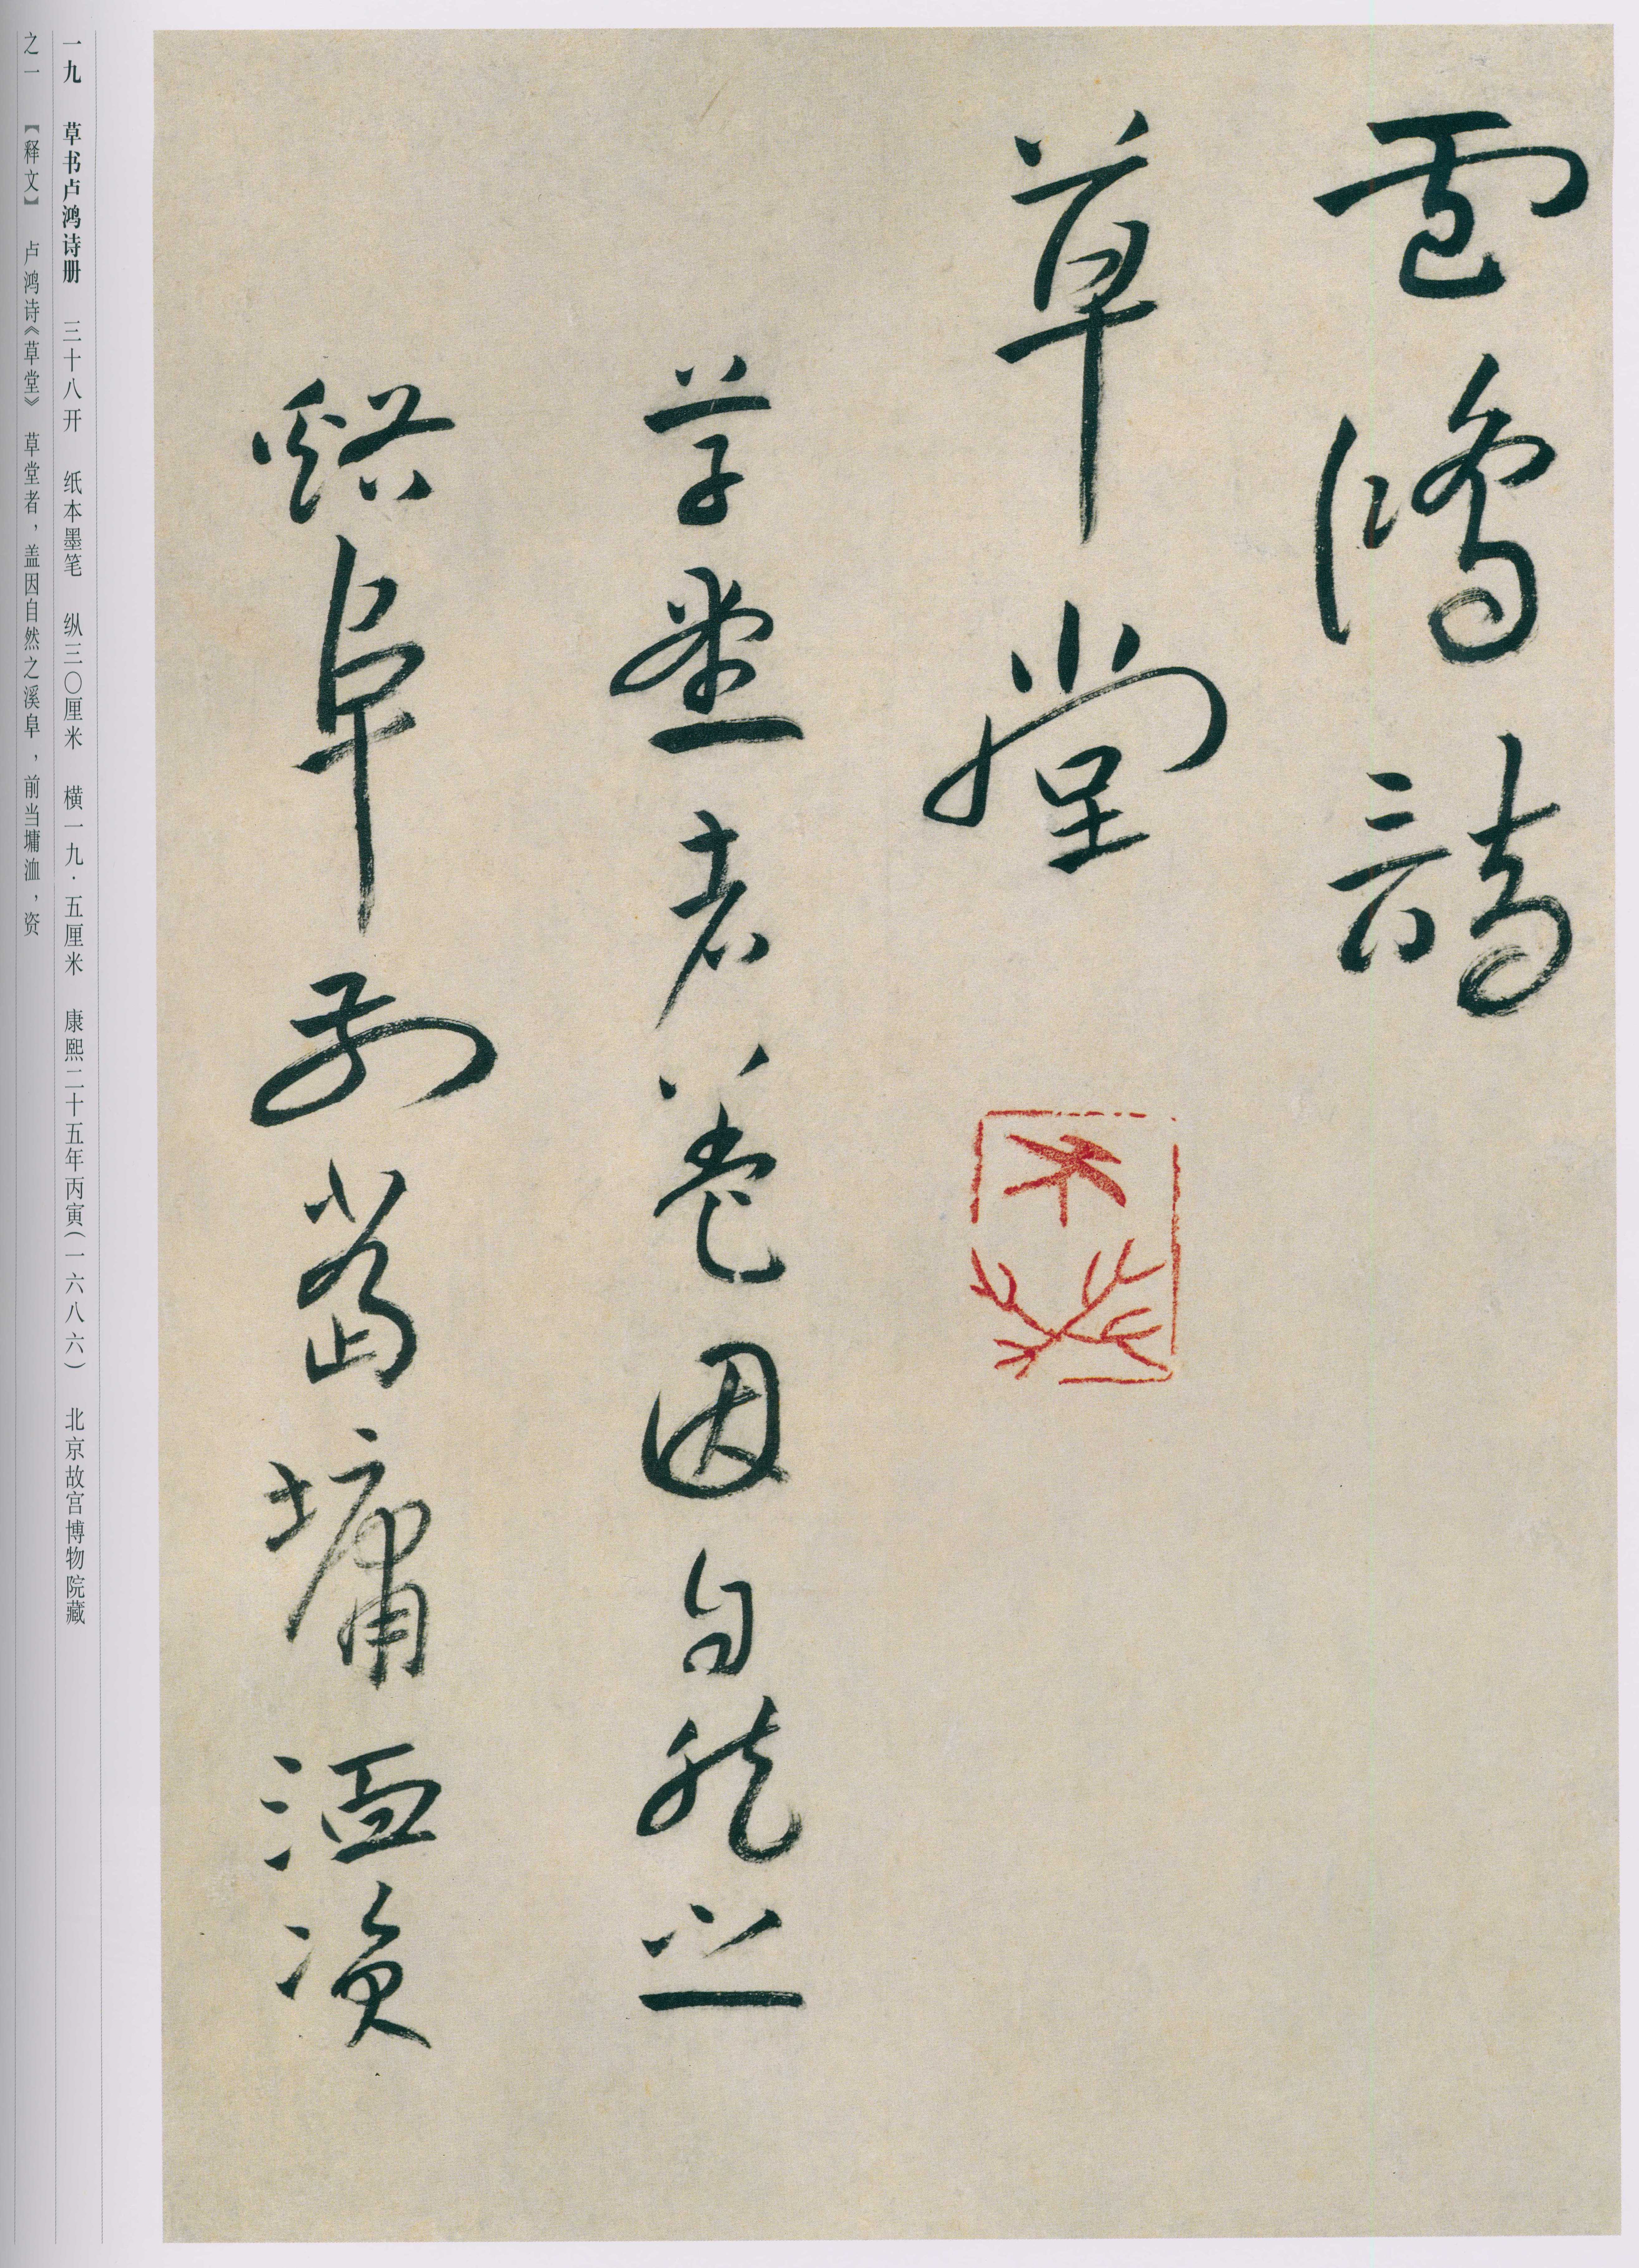 盧鴻詩
草堂
草堂者蓋因自然之
谿阜前當墉洫資
一九 草书卢鸿诗册 三十八开 纸本墨笔 纵三〇厘米 横一九·五厘米 康熙二十五年丙寅(一六八六) 北京故宫博物院藏
之一 【释文】 卢鸿诗《草堂》 草堂者，盖因自然之溪阜，前当墉洫，资